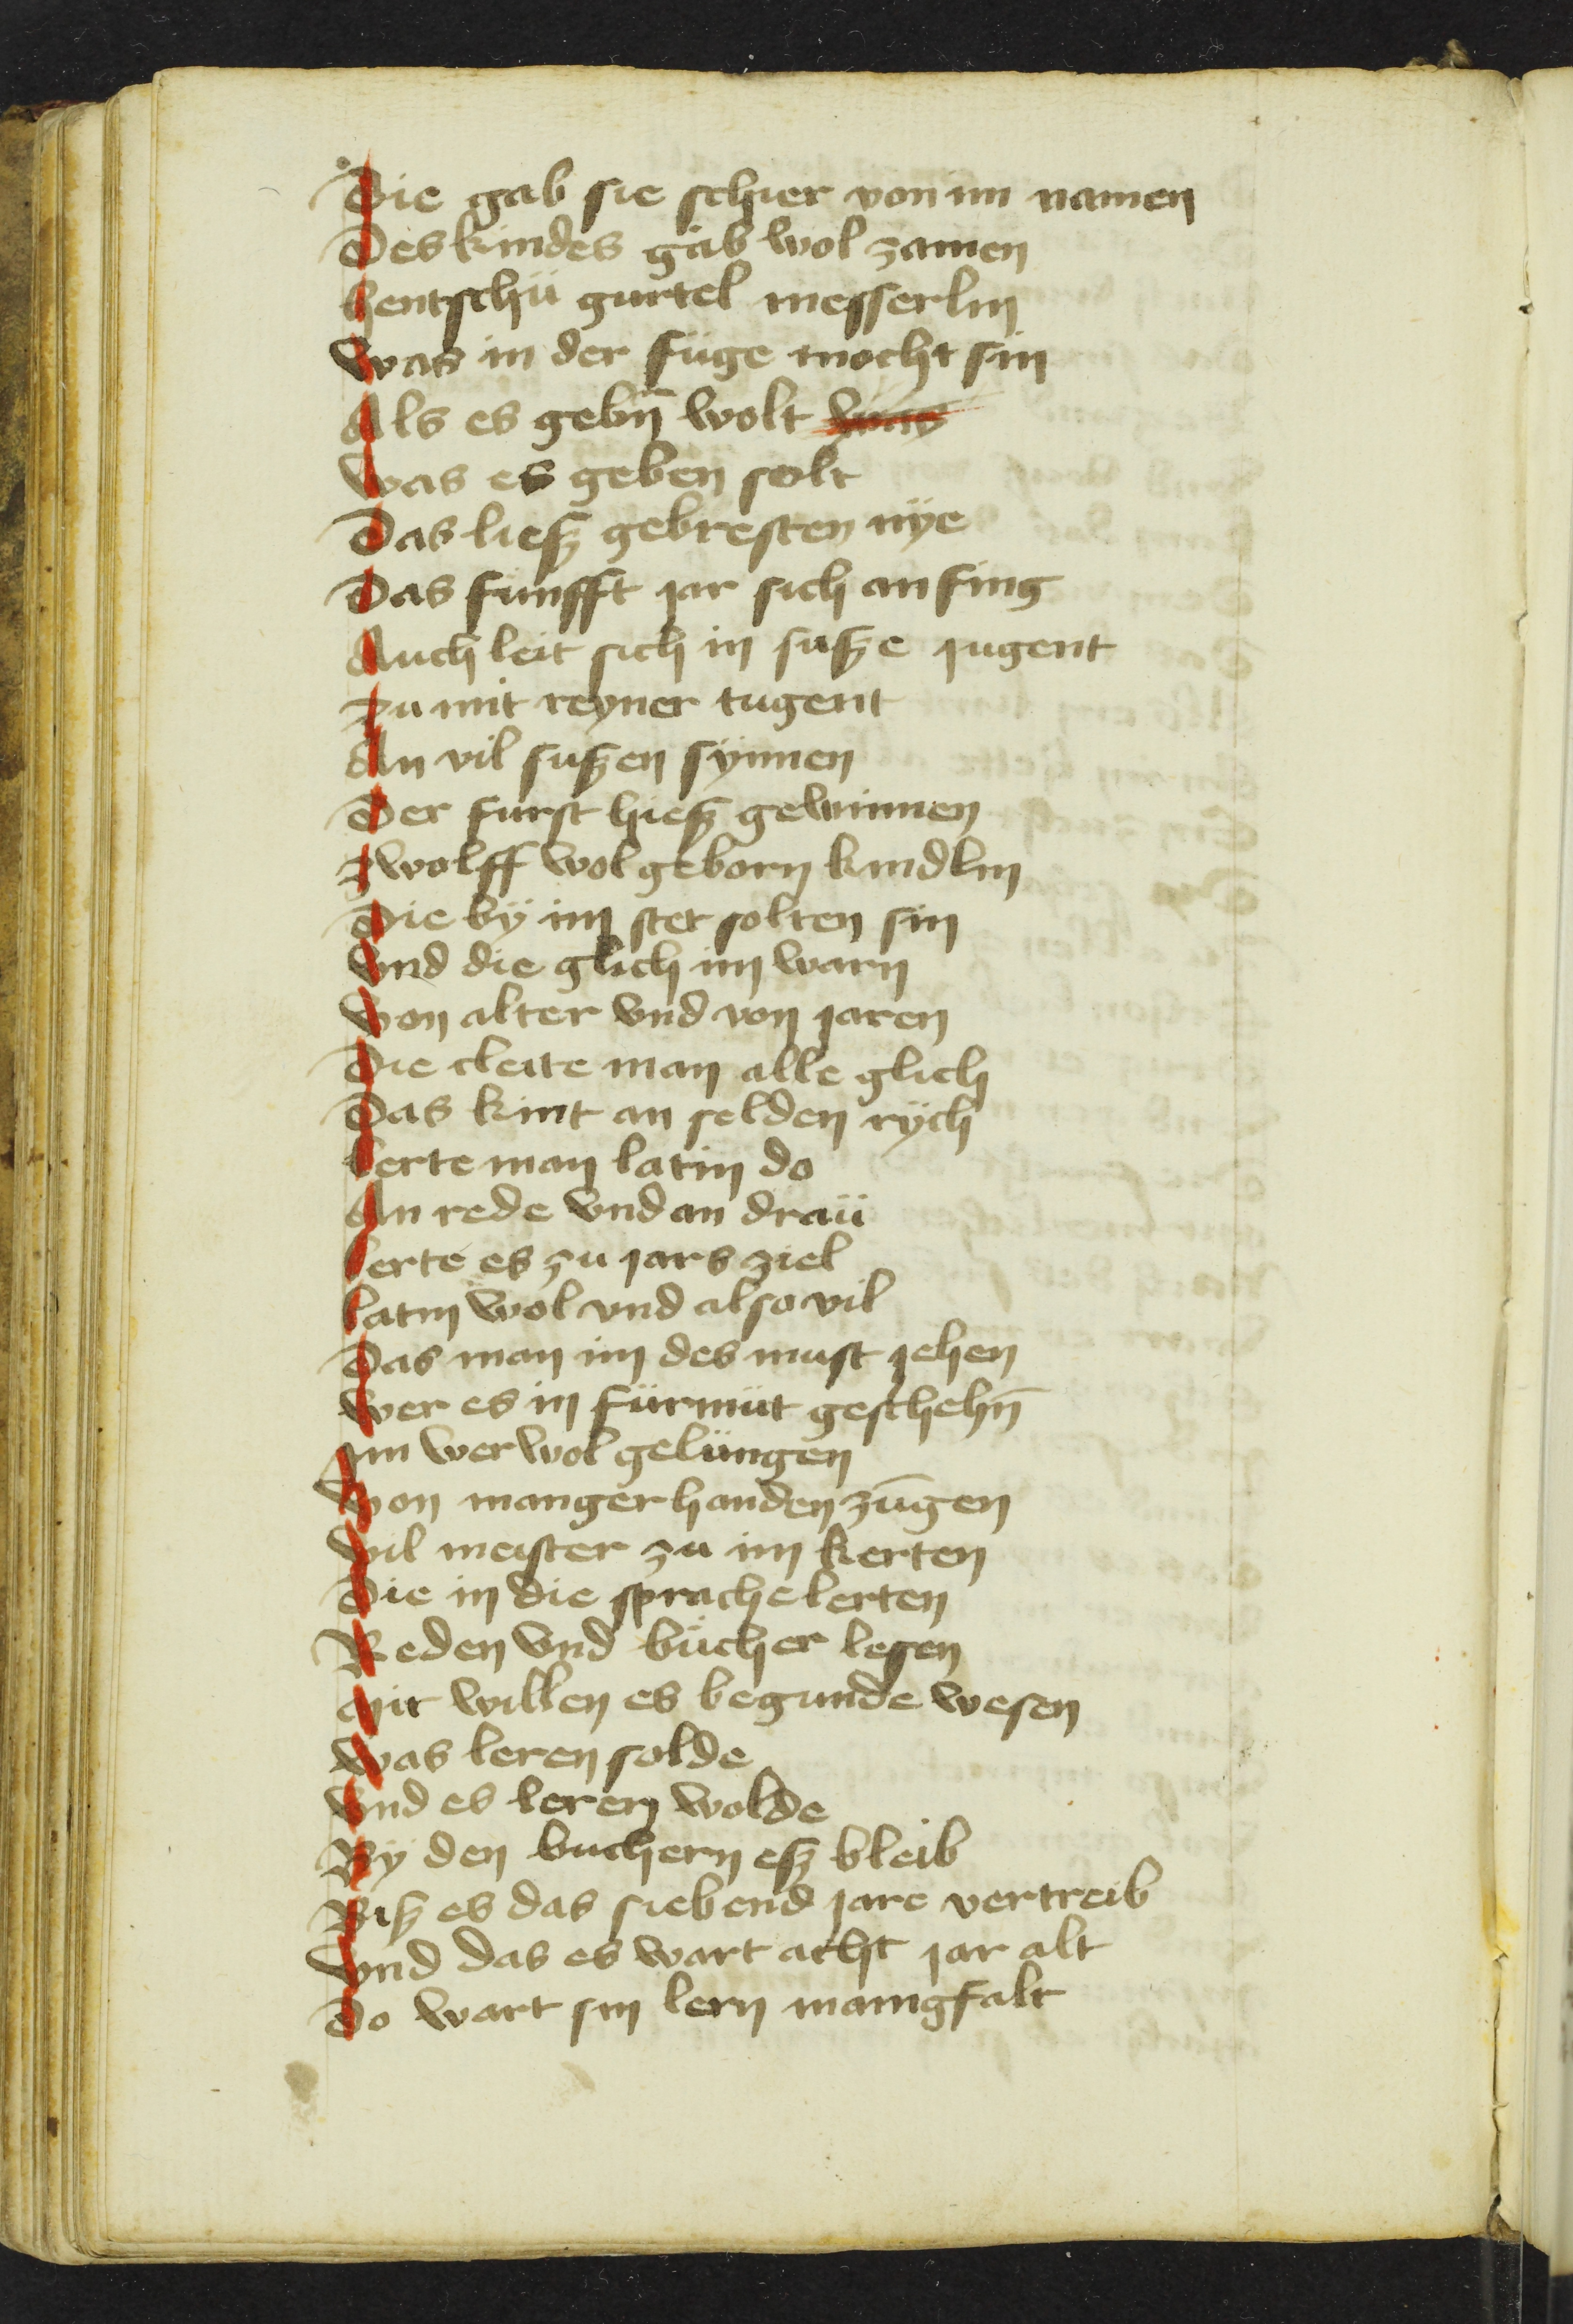 Die gab sie schier von im namen
Des kindes gab wol zamen
hentschü gurtel messerlin
was in der füge mocht sin
Als es gebn̄ wolt was
was es geben solt
Das liesz gebresten nÿe
Das funfft jar sich an fing
Auch leit sich in susze jugent
zu mit reyner tugent
An vil suszen sÿnnen
Der furst hiesz gewinnen
zwolff wol geborn kindlin
Die bÿ im stet solten sin
vnd die glich im warn
von alter vnd von jaren
Die cleite man alle glich
Das kint an selden rÿch
lerte man latin do
An rede vnd an draü
lerte es zu jars ziel
latin wol vnd also vil
Das man im des must jehen
wer es in fürmüt geschehn̄
im wer wol gelüngen
von manger handen zūgen
vil meister zu im kerten
Die in die sprache lerten
Reden vnd bücher lesen
mit willen es begunde wesen
was leren solde
vnd es leren wolde
By den buchern esz bleib
Bisz es das siebend jare vertreib
vnd das es wart acht jar alt
do wart sin lern manigfalt